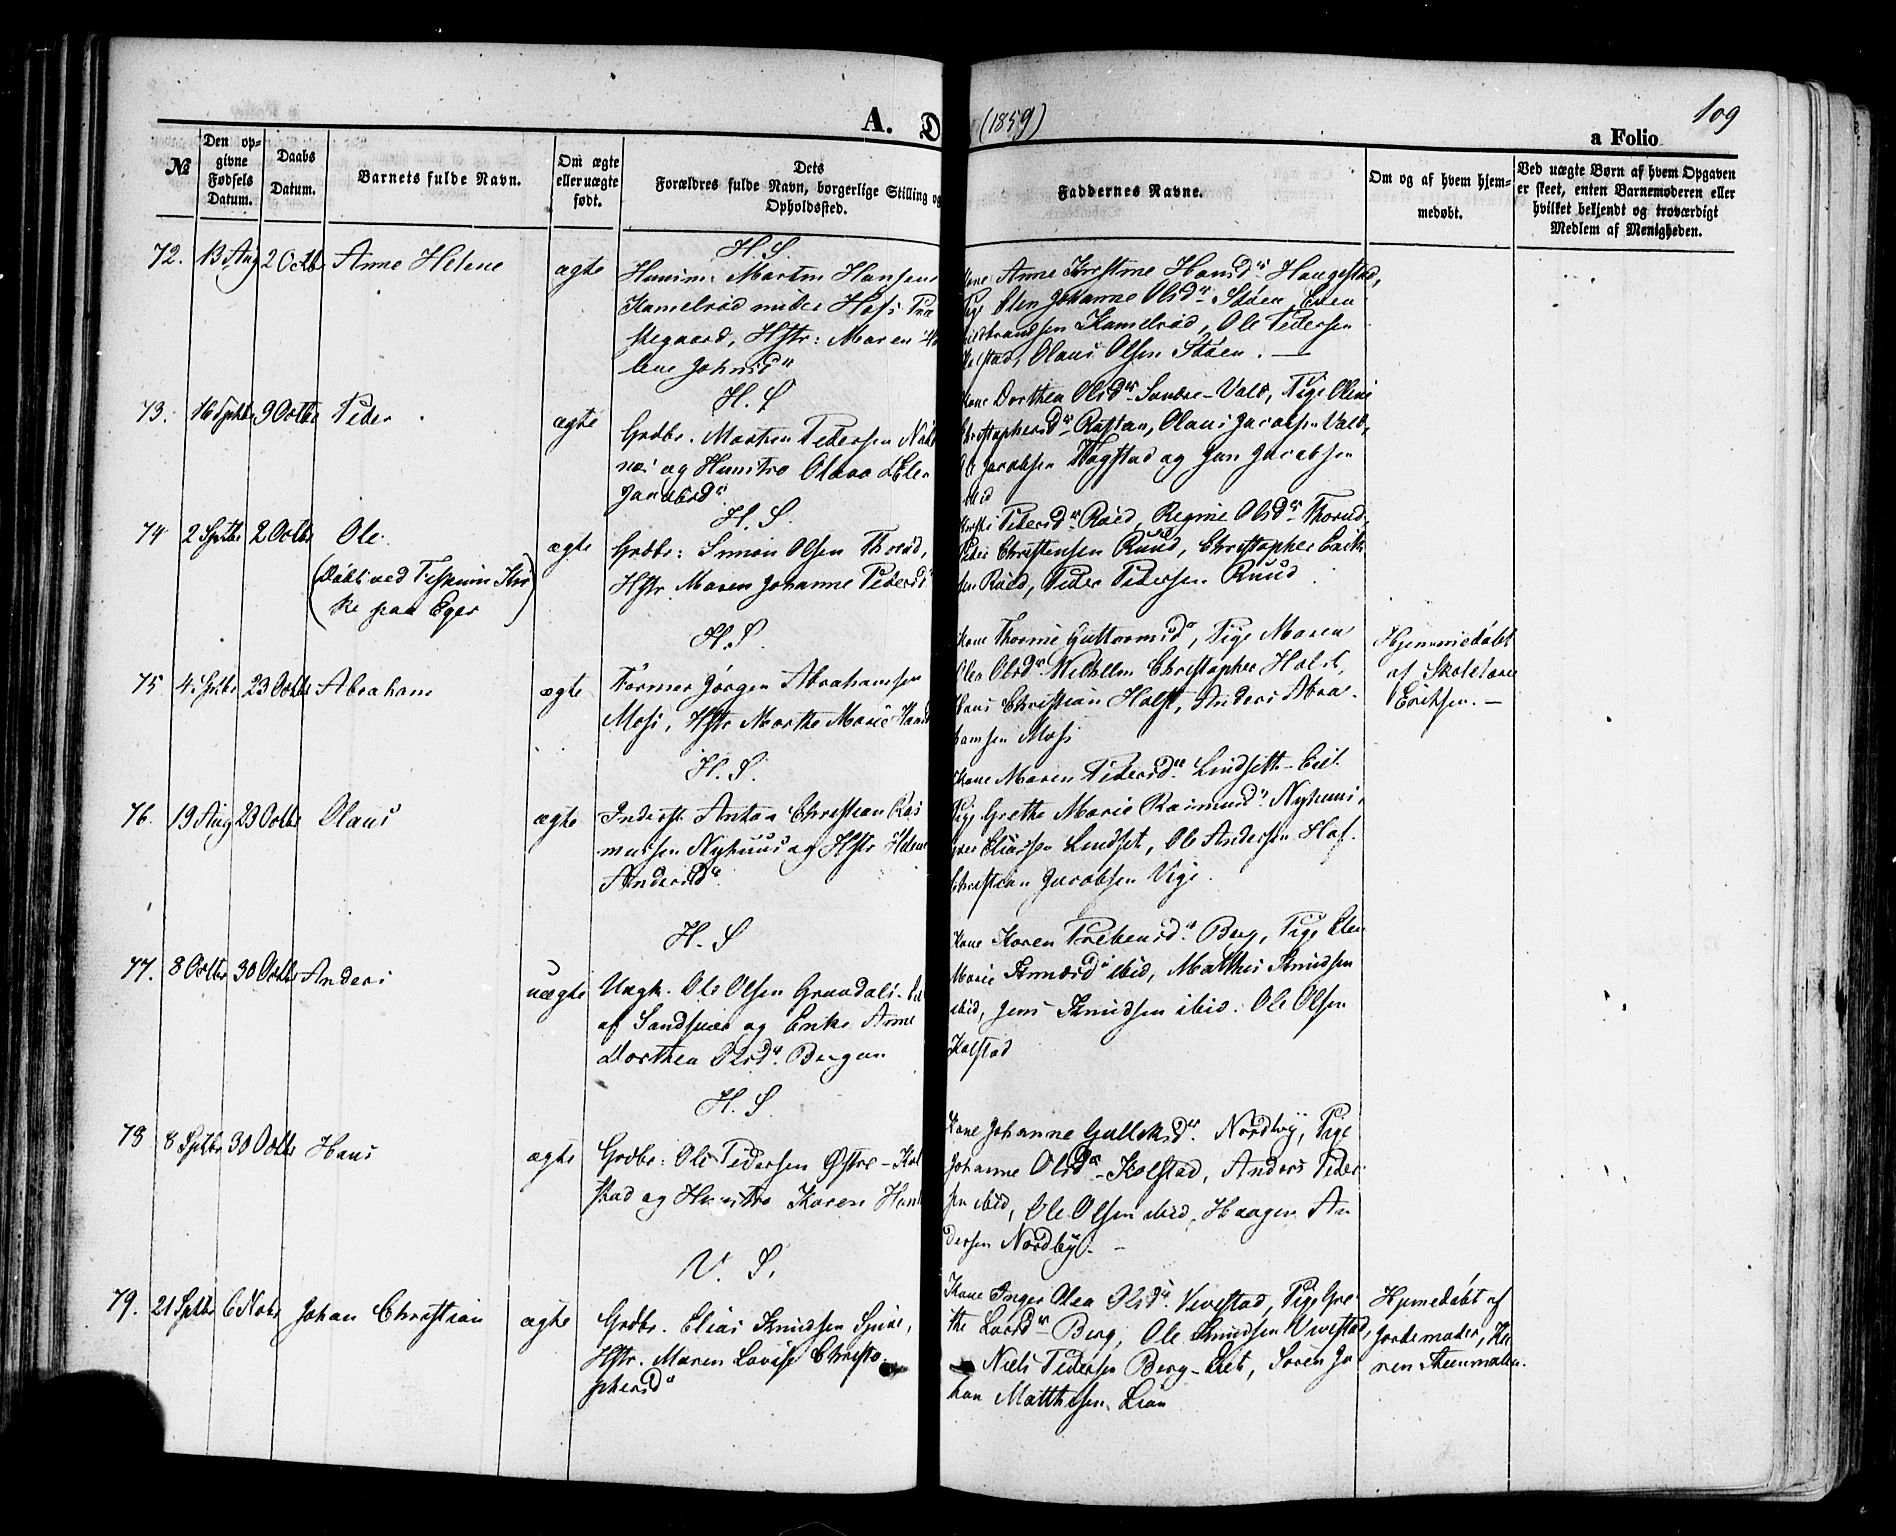 A. D
(1859)
109
a Folio
№
Den op-
givne
Fødsels
Datum.
Daabs
Datum.
Barnets fulde Navn.
Om ægte
eller uægte
født.
Dets
Forældres fulde Navn, borgerlige Stilling og
Opholdssted.
Faddernes Navne.
Om og af hvem hjem-
medøbt.
Ved uægte Børn af hvem Opgaven
er skeet, enten Barnemoderen eller
hvilket bekjendt og troværdigt
Medlem af Menigheden.
72. 13 Aug 2 Octbr Anne Helene
ægte
H. S.
Huusm: Martin Hansen
Kamelrød under Hofs Præ
stegaard, Hstr: Maren
lene Johnsd
Anne Kirstine Hansd Haugestad,
Elen Johanne Olsd Støen, Even
brandsen Kamelrød, Ole Pedersen
stad, Olaus Olsen Støen. —
73. 16 Sptbr 9 Octbr Peder
ægte
H. S
Grdbr. Morten Pedersen
og Hustro Olava Elen
Jacobsd
Dorthea Olsd Søndre-Vald, Pige Oline
Christophersd Røstan, Olaus Jacobsen Vald,
Ole Jacobsen Flagstad og Jan Jacobsen
ibid
74 2 Sptbr 2 Octbr Ole
(Døbt ved Fiskum Kir
ke paa Eger)
ægte
H. S.
Grdbr: Simon Olsen Thorød,
Hstr Maren Johanne Pedersd
Pedersd Røed, Regine Olsd Thorud,
Peder Christensen Ruud, Christopher Erik
sen Røed, Peder Pedersen Ruud
75 4 Sptbr 23 Octbr Abraham
ægte
H. S.
Former Jørgen Abrahamsen
Moss, Hstr Marthe Marie Hansd
Kone Thorine Guttormsd, Pige Maren
Olea Olsd Wilhelm Christopher Holst,
Hans Christian Holst, Anders Abra-
hamsen Moss
Hjemmedøbt
af Skolelærer
Erichsen. —
76. 19 Aug 23 Octbr Olaus
ægte
H. S.
Inderst. Anton Christian Ras
mussen Nyhuus og Hstr Helene
Andersd
Kone Maren Pedersd Lindseth-Eiet
Pige Grethe Marie Rasmusd Nyhuus,
Iver Eliassen Lindset, Ole Andersen Hof.
Christian Jacobsen Vige.
77. 8 Octbr 30 Octbr Anders
uægte
H. S
Ungk. Ole Olsen Gravdals-
af Sandsvær og Enke Anne
Dorthea Olsd Bergan
Kone Karen Prebensd Berg, Pige Elen
Marie Knudsd ibid, Mathis Knudsen
ibid, Jens Knudsen ibid. Ole Olsen
Kolstad
78 8 Sptbr 30 Octbr Hans
ægte
H. S.
Grdbr: Ole Pedersen Østre-Kol
stad og Hustro Karen Hans
Kone Johanne Gulleksd Nordby, Pige
Johanne Olsd Kolstad, Anders Peder-
sen ibid, Ole Olsen ibid, Haagen An
dersen Nordby. —
79. 21 Sptbr 6 Novbr Johan Christian
ægte
V. S.
Grdbr. Elias Knudsen Sjue,
Hstr. Maren Lovise Christo
phersd
Kone Inger Olea Olsd Vivestad, Pige Gre-
the Larsd Berg, Ole Knudsen Vivestad,
Niels Pedersen Berg-Eiet, Søren Jo
han Matthisen Lian
Hjmedøbt af
Jordemoder, Ka
ren Steinmalen.